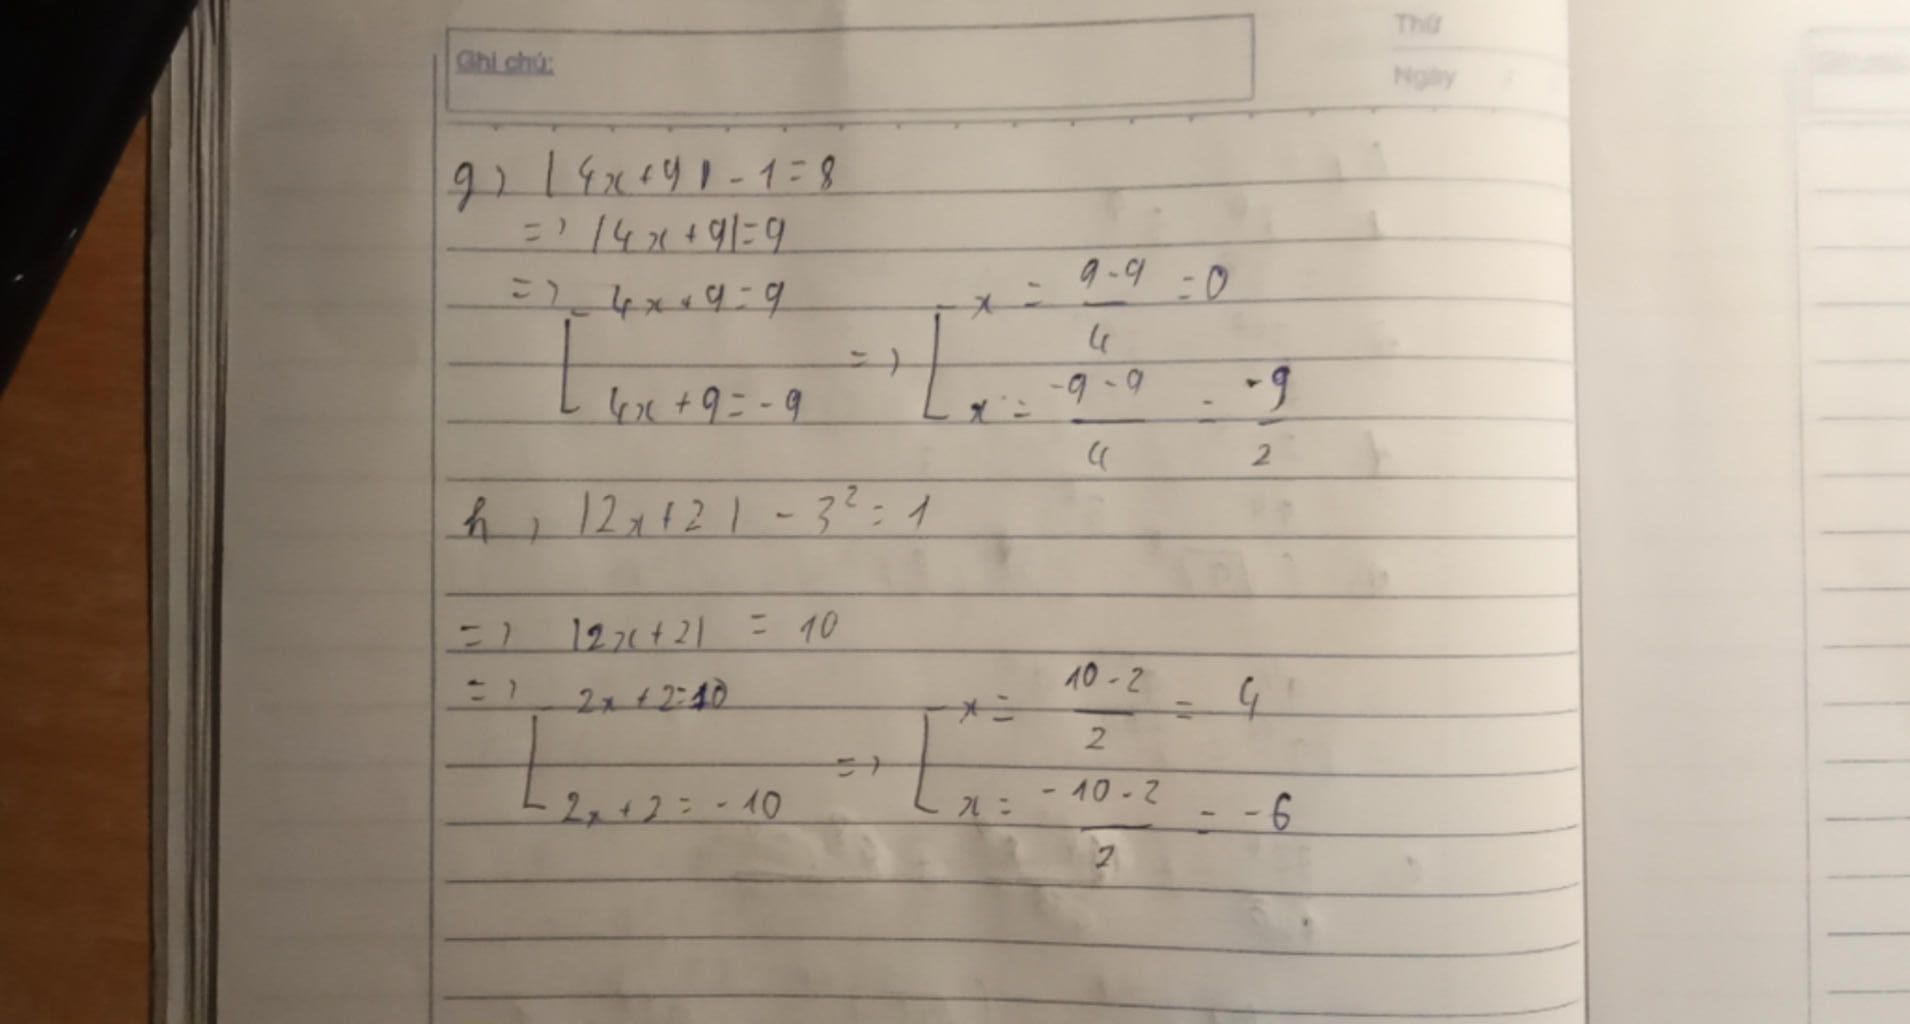 Ghi chú:
Thứ
Ngày
g) |4x+9| - 1 = 8
=> |4x+9| = 9
=> [ 4x+9=9 => [ x = \frac{9-9}{4} = 0
4x+9=-9 x = \frac{-9-9}{4} = \frac{-9}{2}
h) |2x+2| - 3² = 1
=> |2x+2| = 10
=> [ 2x+2=10 => [ x = \frac{10-2}{2} = 4
2x+2=-10 x = \frac{-10-2}{2} = -6